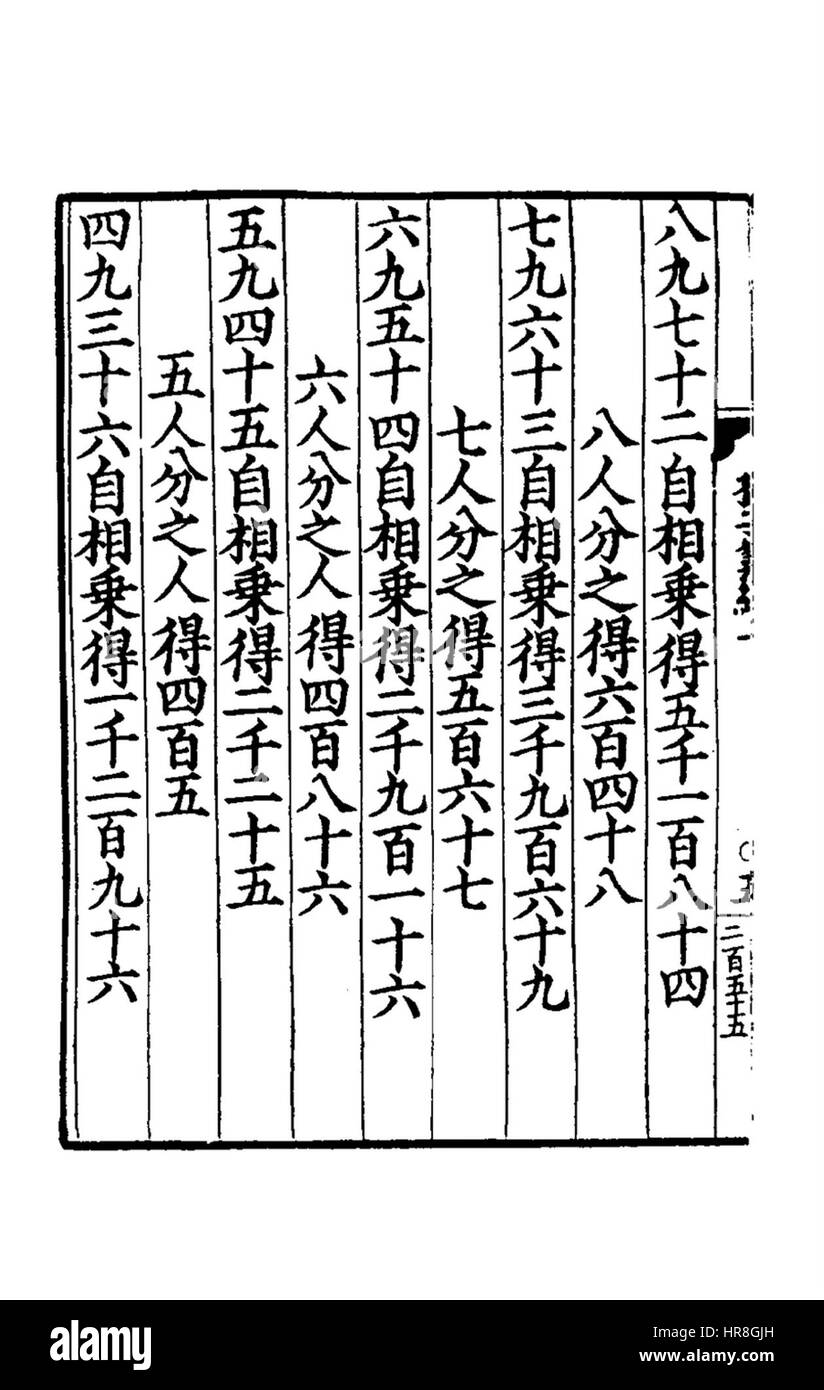 二百五十五
八九七十二自相乗得五千一百八十四
八人分之得六百四十八
七九六十三自相乗得三千九百六十九
七人分之得五百六十七
六九五十四自相乗得二千九百一十六
六人分之人得四百八十六
五九四十五自相乗得二千二十五
五人分之人得四百五
四九三十六自相乗得一千二百九十六
alamy
alamy
Image ID: HR8GJH
www.alamy.com